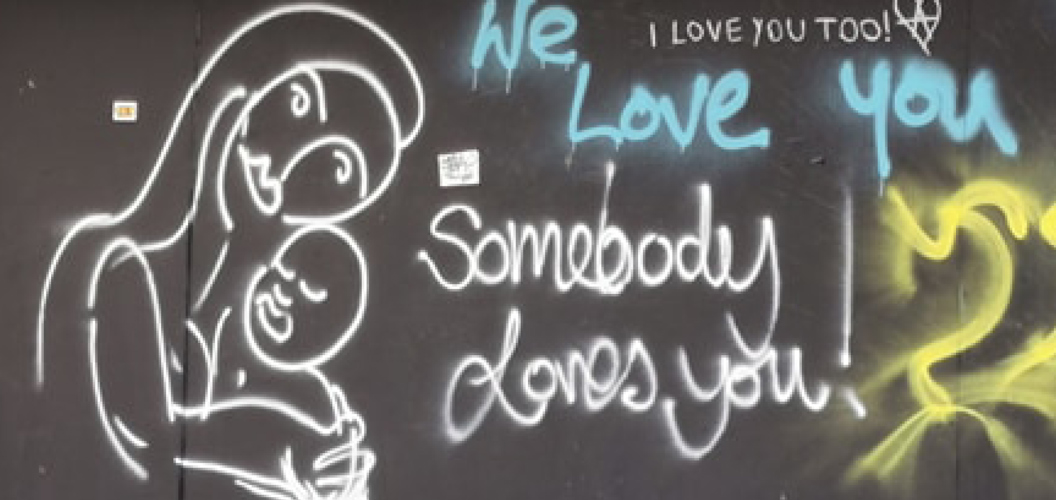 We
I LOVE YOU TOO!
Love you
Somebody
Loves you!